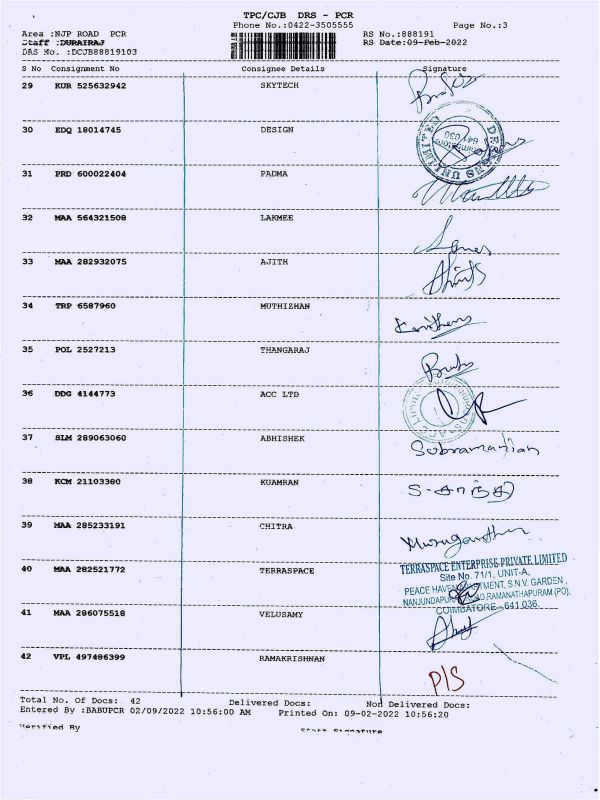 TPC/CJB DRS - PCR
Phone No.:0422-3505555 Page No.:3
Area :NJP ROAD PCR RS No.:888191
Staff :DURAIRAJ RS Date:09-Feb-2022
DRS No. :DCJB88819103
S No Consignment No Consignee Details Signature
29 KUR 525632942 SKYTECH
30 EDQ 18014745 DESIGN
641 030
31 PRD 600022404 PADMA
32 MAA 564321508 LAKMEE
33 MAA 282932075 AJITH
34 TRP 6587960 MUTHIZHAN
35 POL 2527213 THANGARAJ
36 DDG 4144773 ACC LTD
37 SLM 289063060 ABHISHEK
Subramanian
38 KCM 21103380 KUAMRAN
39 MAA 285233191 CHITRA
40 MAA 282521772 TERRASPACE
TERRASPACE ENTERPRISE PRIVATE LIMITED
Site No. 71/1, UNIT-A,
PEACE HAVEN S.N.V. GARDEN,
RAMANATHAPURAM (PO),
COIMBATORE - 641 036.
41 MAA 286075518 VELUSAMY
42 VPL 497486399 RAMAKRISHNAN
P/S
Total No. Of Docs: 42 Delivered Docs: Non Delivered Docs:
Entered By :BABUPCR 02/09/2022 10:56:00 AM Printed On: 09-02-2022 10:56:20
Verified By Staff Signature